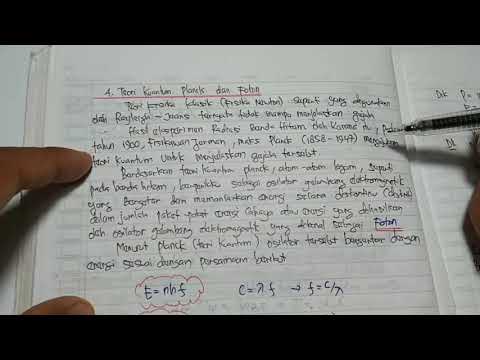 4. Teori Kuantum Planck dan Foton
Teori Fisika klasik (Fisika Newton) seperti yang digunakan
oleh Rayleigh - Jeans ternyata tidak mampu menjelaskan gejala
Hasil eksperimen Radiasi Benda Hitam. Oleh Karena itu, Pada
tahun 1900, Fisikawan Jerman, Max Planck (1858 - 1947) mengajukan
teori Kuantum Untuk Menjelaskan gejala tersebut.
Berdasarkan teori kuantum planck, atom-atom logam, seperti
pada benda hitam, berperilaku sebagai osilator gelombang elektromagnetik
yang Bergetar dan memancarkan energi secara diskontinu (diskrit)
dalam jumlah paket-paket energi Cahaya atau energi yang dihasilkan
oleh osilator gelombang elektromagnetik yang dikenal sebagai Foton
Menurut Planck (teori Kuantum) osilator tersebut bergetar dengan
energi sesuai dengan persamaan berikut
E = nhf C = λ f → f = C/λ
Dik P =
Dit